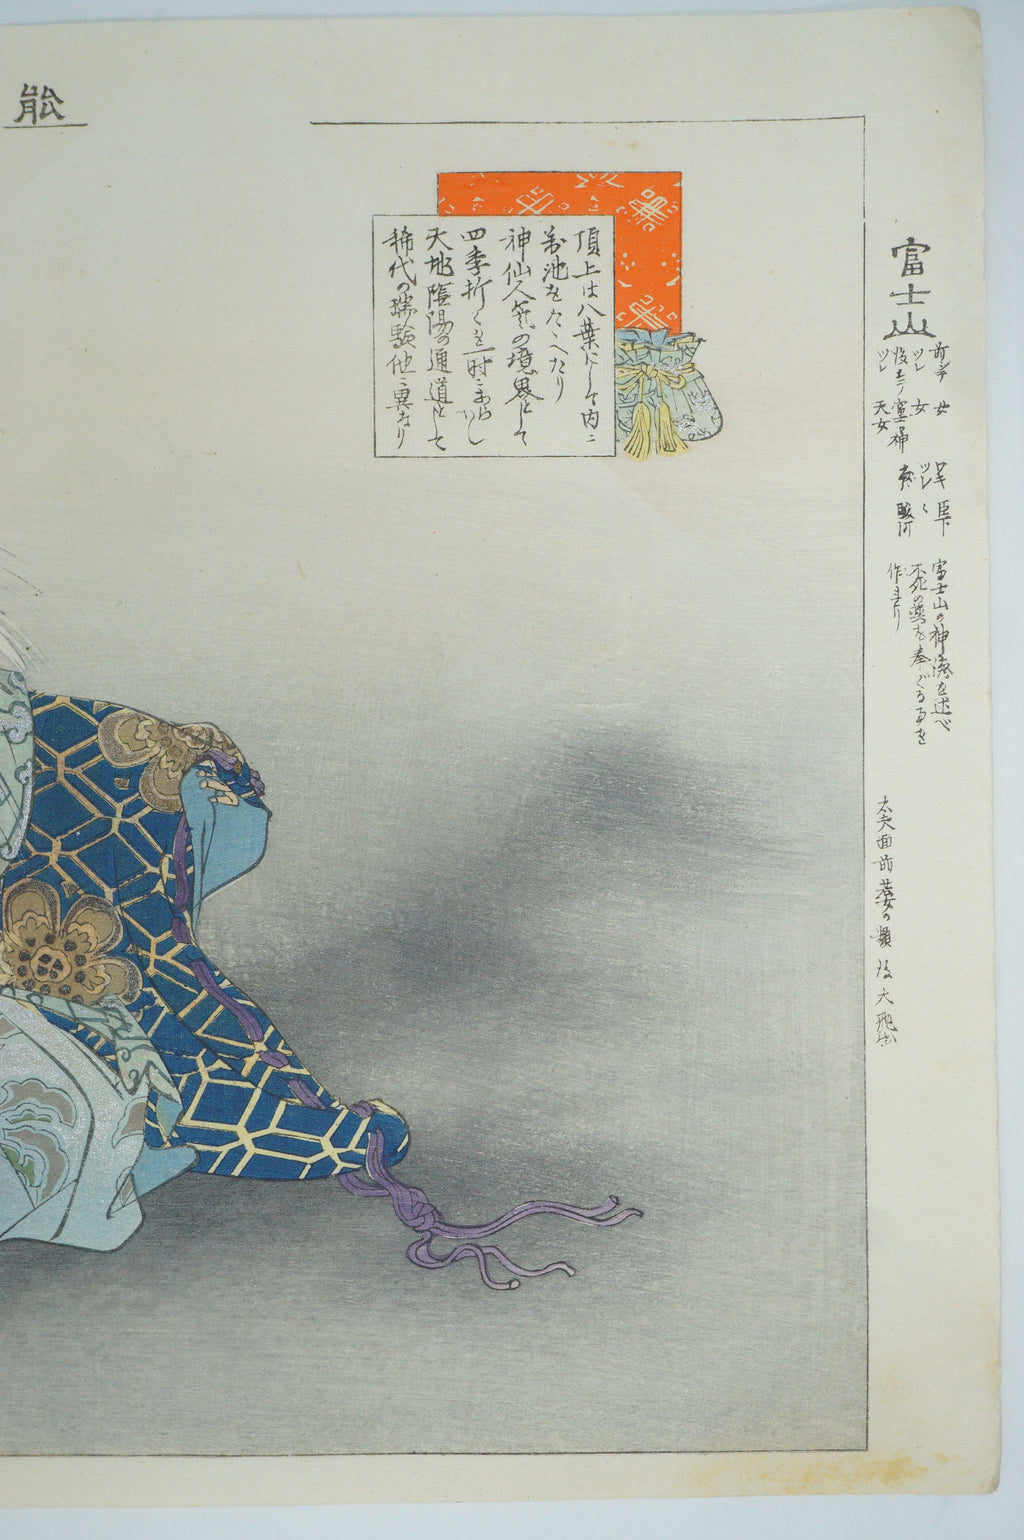 能
頂上は八葉にして内ニ
満池をたゝへたり
神仙人気の境界として
四季折〳〵を一時ニあらハし
天地陰陽の通道として
稀代の瑞験他ニ異なり
富士山
前シテ 女
ツレ 女
後シテ 富士ノ神
ツレ 天女
ワキ 臣下
ツレ 〻
処ハ 駿河
富士山の神徳を述べ
不死の薬を奉ぐる事を
作れり
太夫面 前 若女の類 後 大飛出